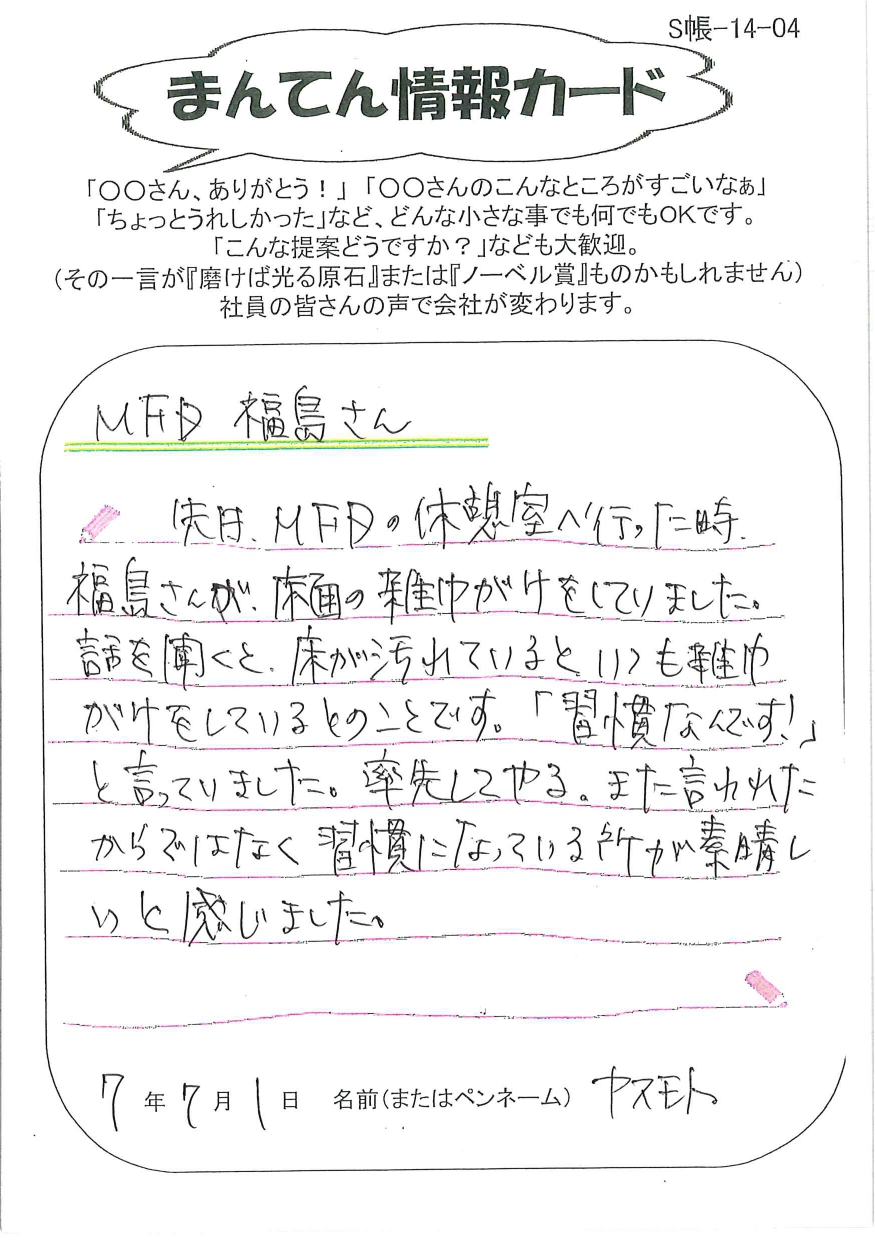 S帳-14-04
まんてん情報カード
「〇〇さん、ありがとう！」「〇〇さんのこんなところがすごいなぁ」
「ちょっとうれしかった」など、どんな小さな事でも何でもOKです。
「こんな提案どうですか？」なども大歓迎。
(その一言が『磨けば光る原石』または『ノーベル賞』ものかもしれません)
社員の皆さんの声で会社が変わります。
MFD 福島さん
先日、MFDの休憩室へ行った時、
福島さんが、床面の雑巾がけをしていました。
話を聞くと、床が汚れているといつも雑巾
がけをしているとのことです。「習慣なんです!」
と言っていました。率先してやる。また言われた
からではなく習慣になっている所が素晴し
いと感じました。
7年7月1日 名前(またはペンネーム) ヤスモト